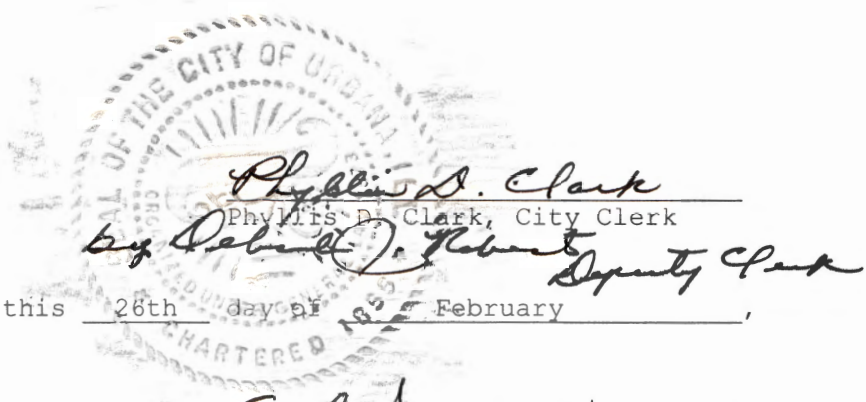 SEAL OF THE CITY OF URBANA
CHARTERED 1855
Phyllis D. Clark
Phyllis D. Clark, City Clerk
by Debra J. Roberts
Deputy Clerk
this 26th day of February,